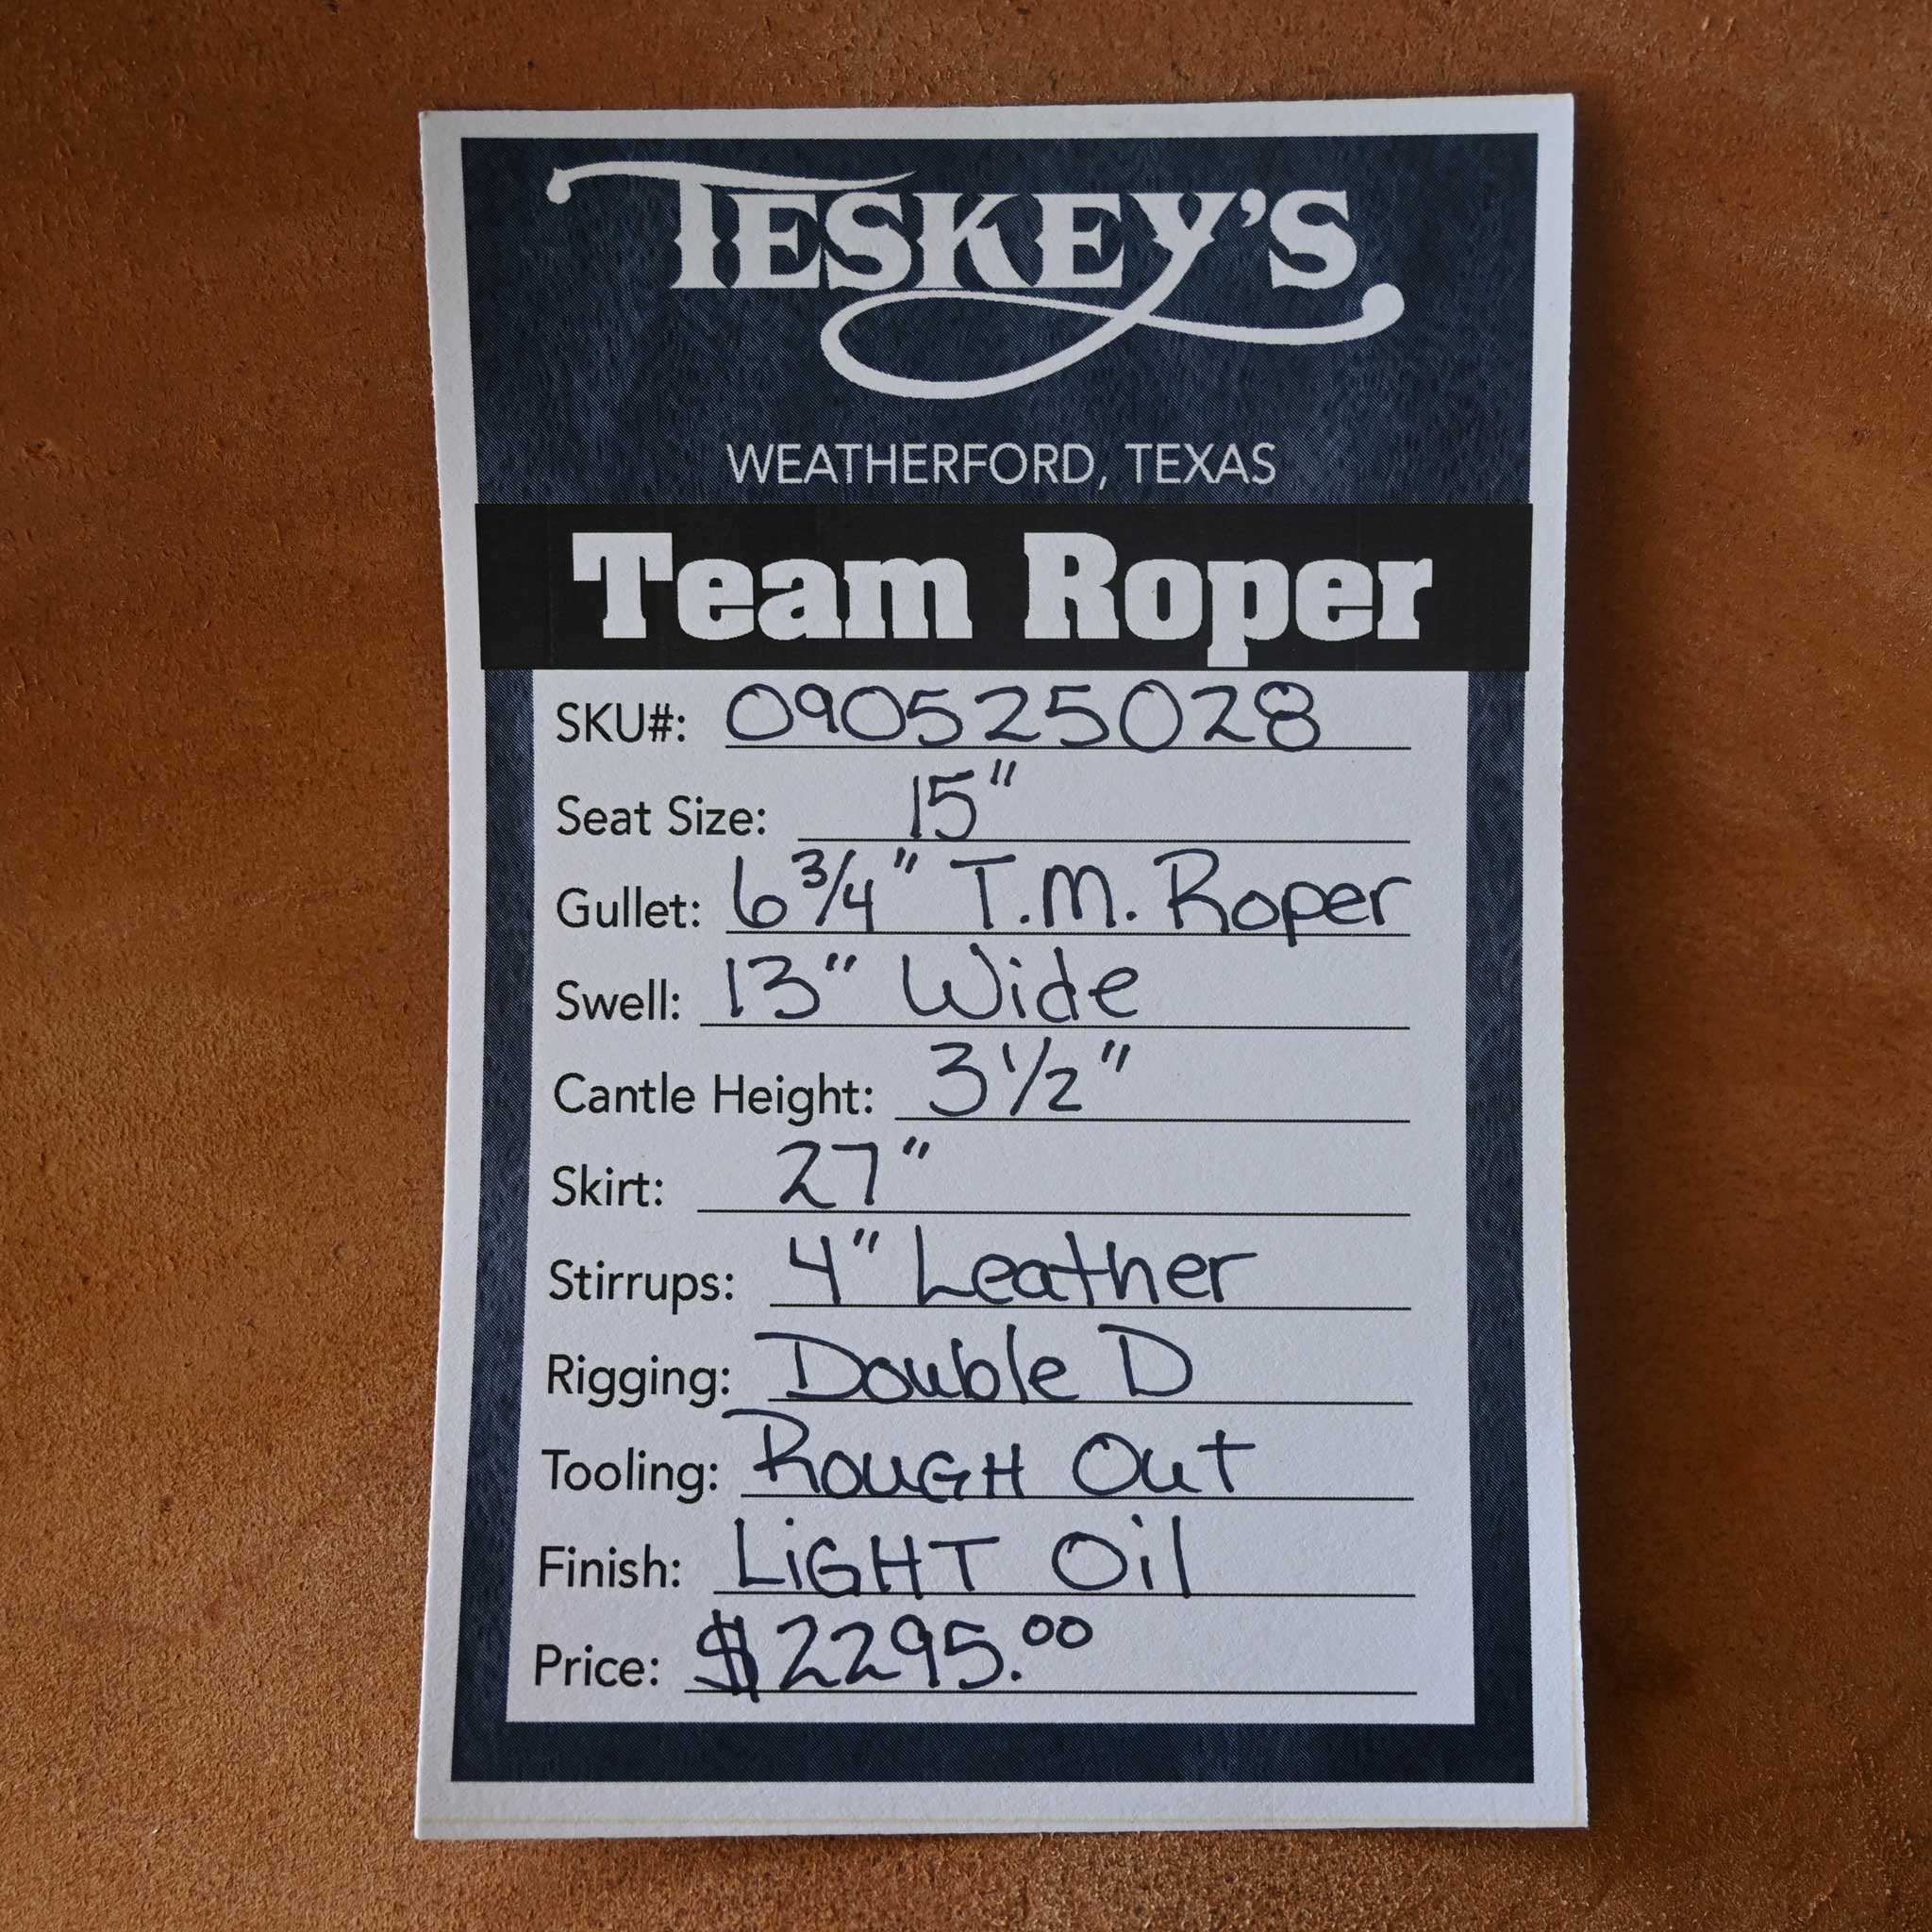 TESKEY'S
WEATHERFORD, TEXAS
Team Roper
SKU#: 090525028
Seat Size: 15"
Gullet: 6 3/4" T.M. Roper
Swell: 13" Wide
Cantle Height: 3 1/2"
Skirt: 27"
Stirrups: 4" Leather
Rigging: Double D
Tooling: ROUGH Out
Finish: LiGHT Oil
Price: $2295.00